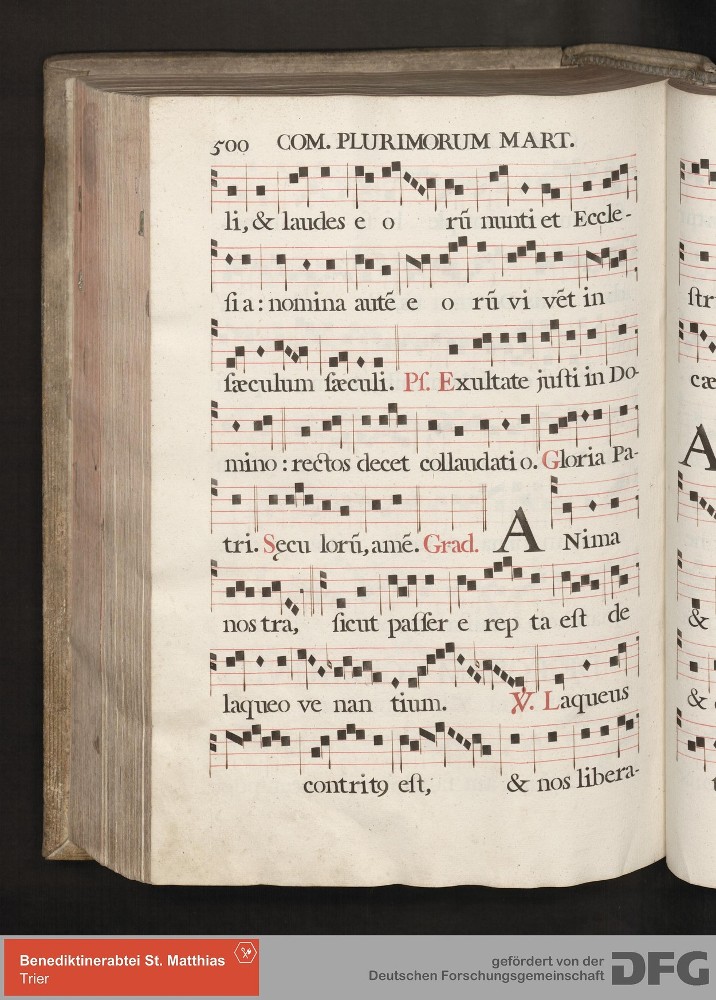 500 COM. PLURIMORUM MART.
li, & laudes e o rũ nunti et Eccle-
ſi a : nomina autẽ e o rũ vi vẽt in
ſtr
ſæculum ſæculi. Pſ. Exultate juſti in Do-
cæ
mino : rectos decet collaudati o. Gloria Pa-
A
tri. Sęcu lorũ, amẽ. Grad. A Nima
nos tra, ſicut paſſer e rep ta eſt de
&
laqueo ve nan tium. ℣. Laqueus
&
contritꝯ eſt, & nos libera-
Benediktinerabtei St. Matthias
Trier
gefördert von der
Deutschen Forschungsgemeinschaft DFG